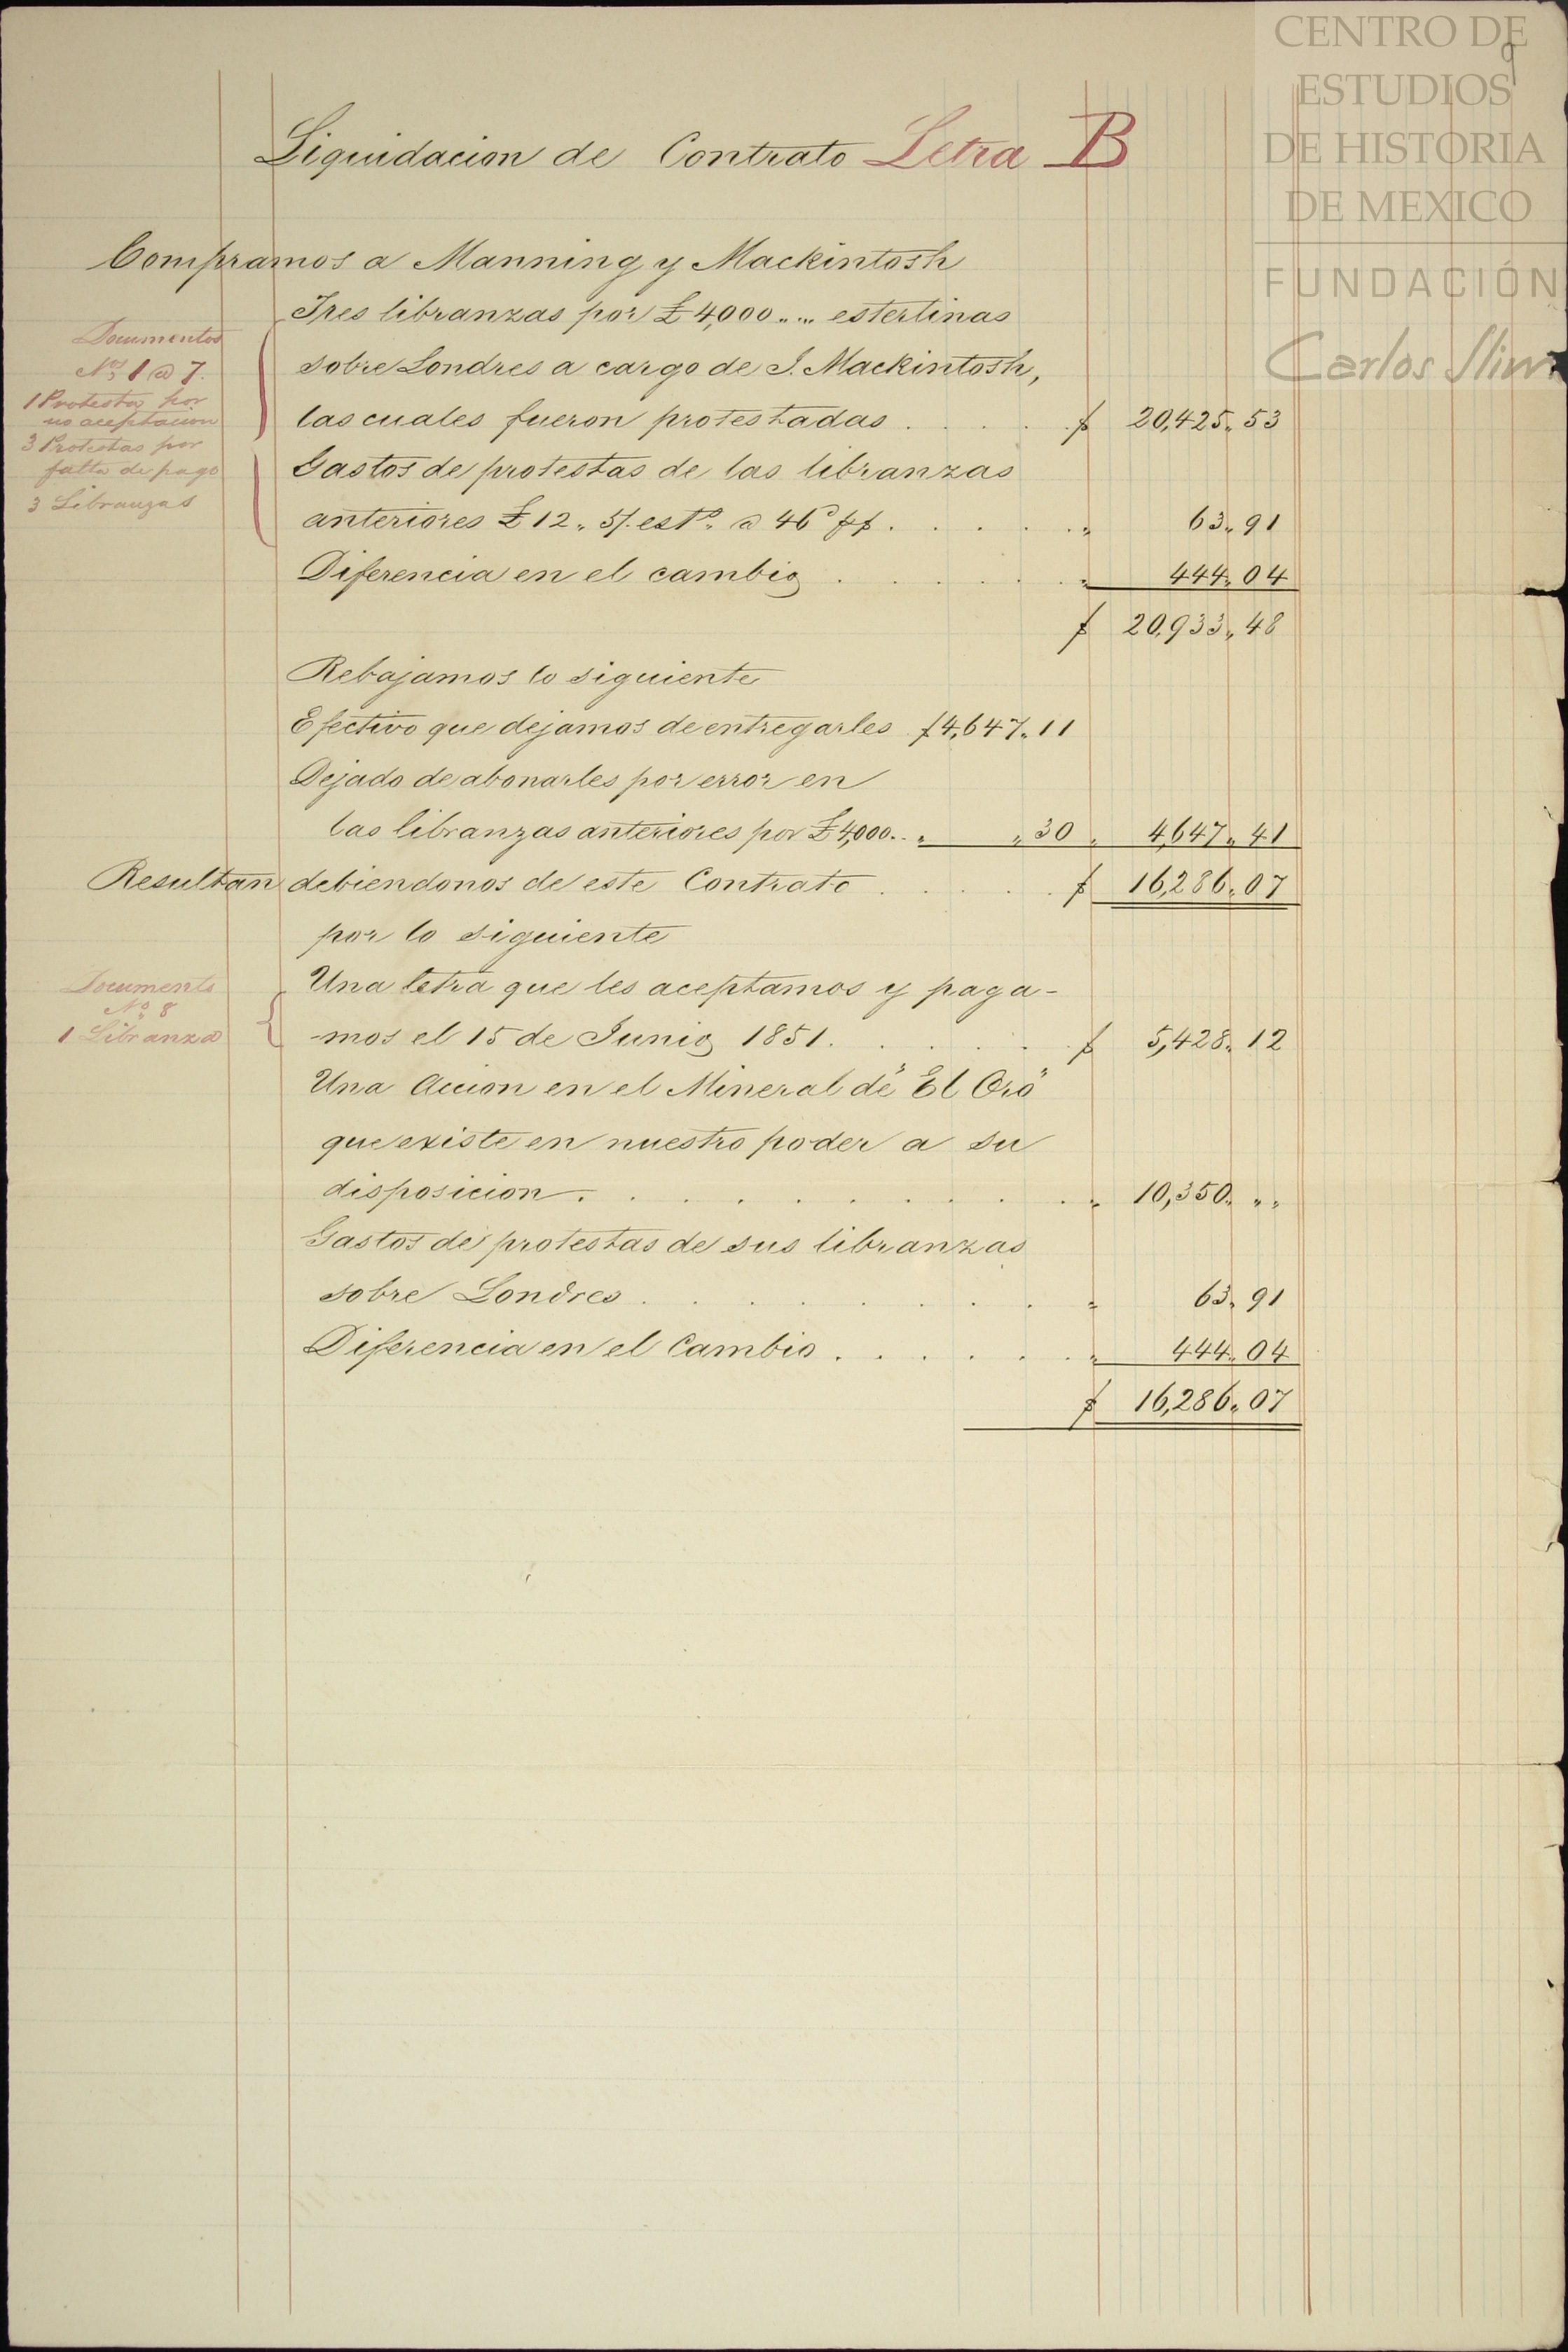 CENTRO DE
ESTUDIOS
DE HISTORIA
DE MEXICO
FUNDACIÓN
Carlos Slim
9
Liquidacion de Contrato Letra B
Compramos a Manning y Mackintosh
Tres libranzas por £ 4,000 „ „ esterlinas
Documentos
Nos 1 @ 7.
1 Protesta por
no aceptacion
3 Protestas por
falta de pago
3 Libranzas
sobre Londres a cargo de J. Mackintosh,
las cuales fueron protestadas . . . . . $ 20,425„ 53
Gastos de protestas de las libranzas
anteriores £ 12„ 5/. esto. @ 46 . . . . . „ 63„ 91
Diferencia en el cambio . . . . . „ 444„ 04
$ 20,933„ 48
Rebajamos lo siguiente
Efectivo que dejamos de entregarles $4,647„11
Dejado de abonarles por error en
las libranzas anteriores por £ 4,000. . „ „ 30 „ 4,647„ 41
Resultan debiendonos de este Contrato . . . . . $ 16,286„ 07
por lo siguiente
Documento
No 8
1 Libranza
Una letra que les aceptamos y paga-
-mos el 15 de Junio 1851. . . . . . $ 5,428„ 12
Una Accion en el Mineral de "El Oro"
que existe en nuestro poder a su
disposicion . . . . . . . . . . „ 10,350„ „ „
Gastos de protestas de sus libranzas
sobre Londres . . . . . . . . „ 63„ 91
Diferencia en el Cambio . . . . . . „ 444„ 04
$ 16,286„ 07